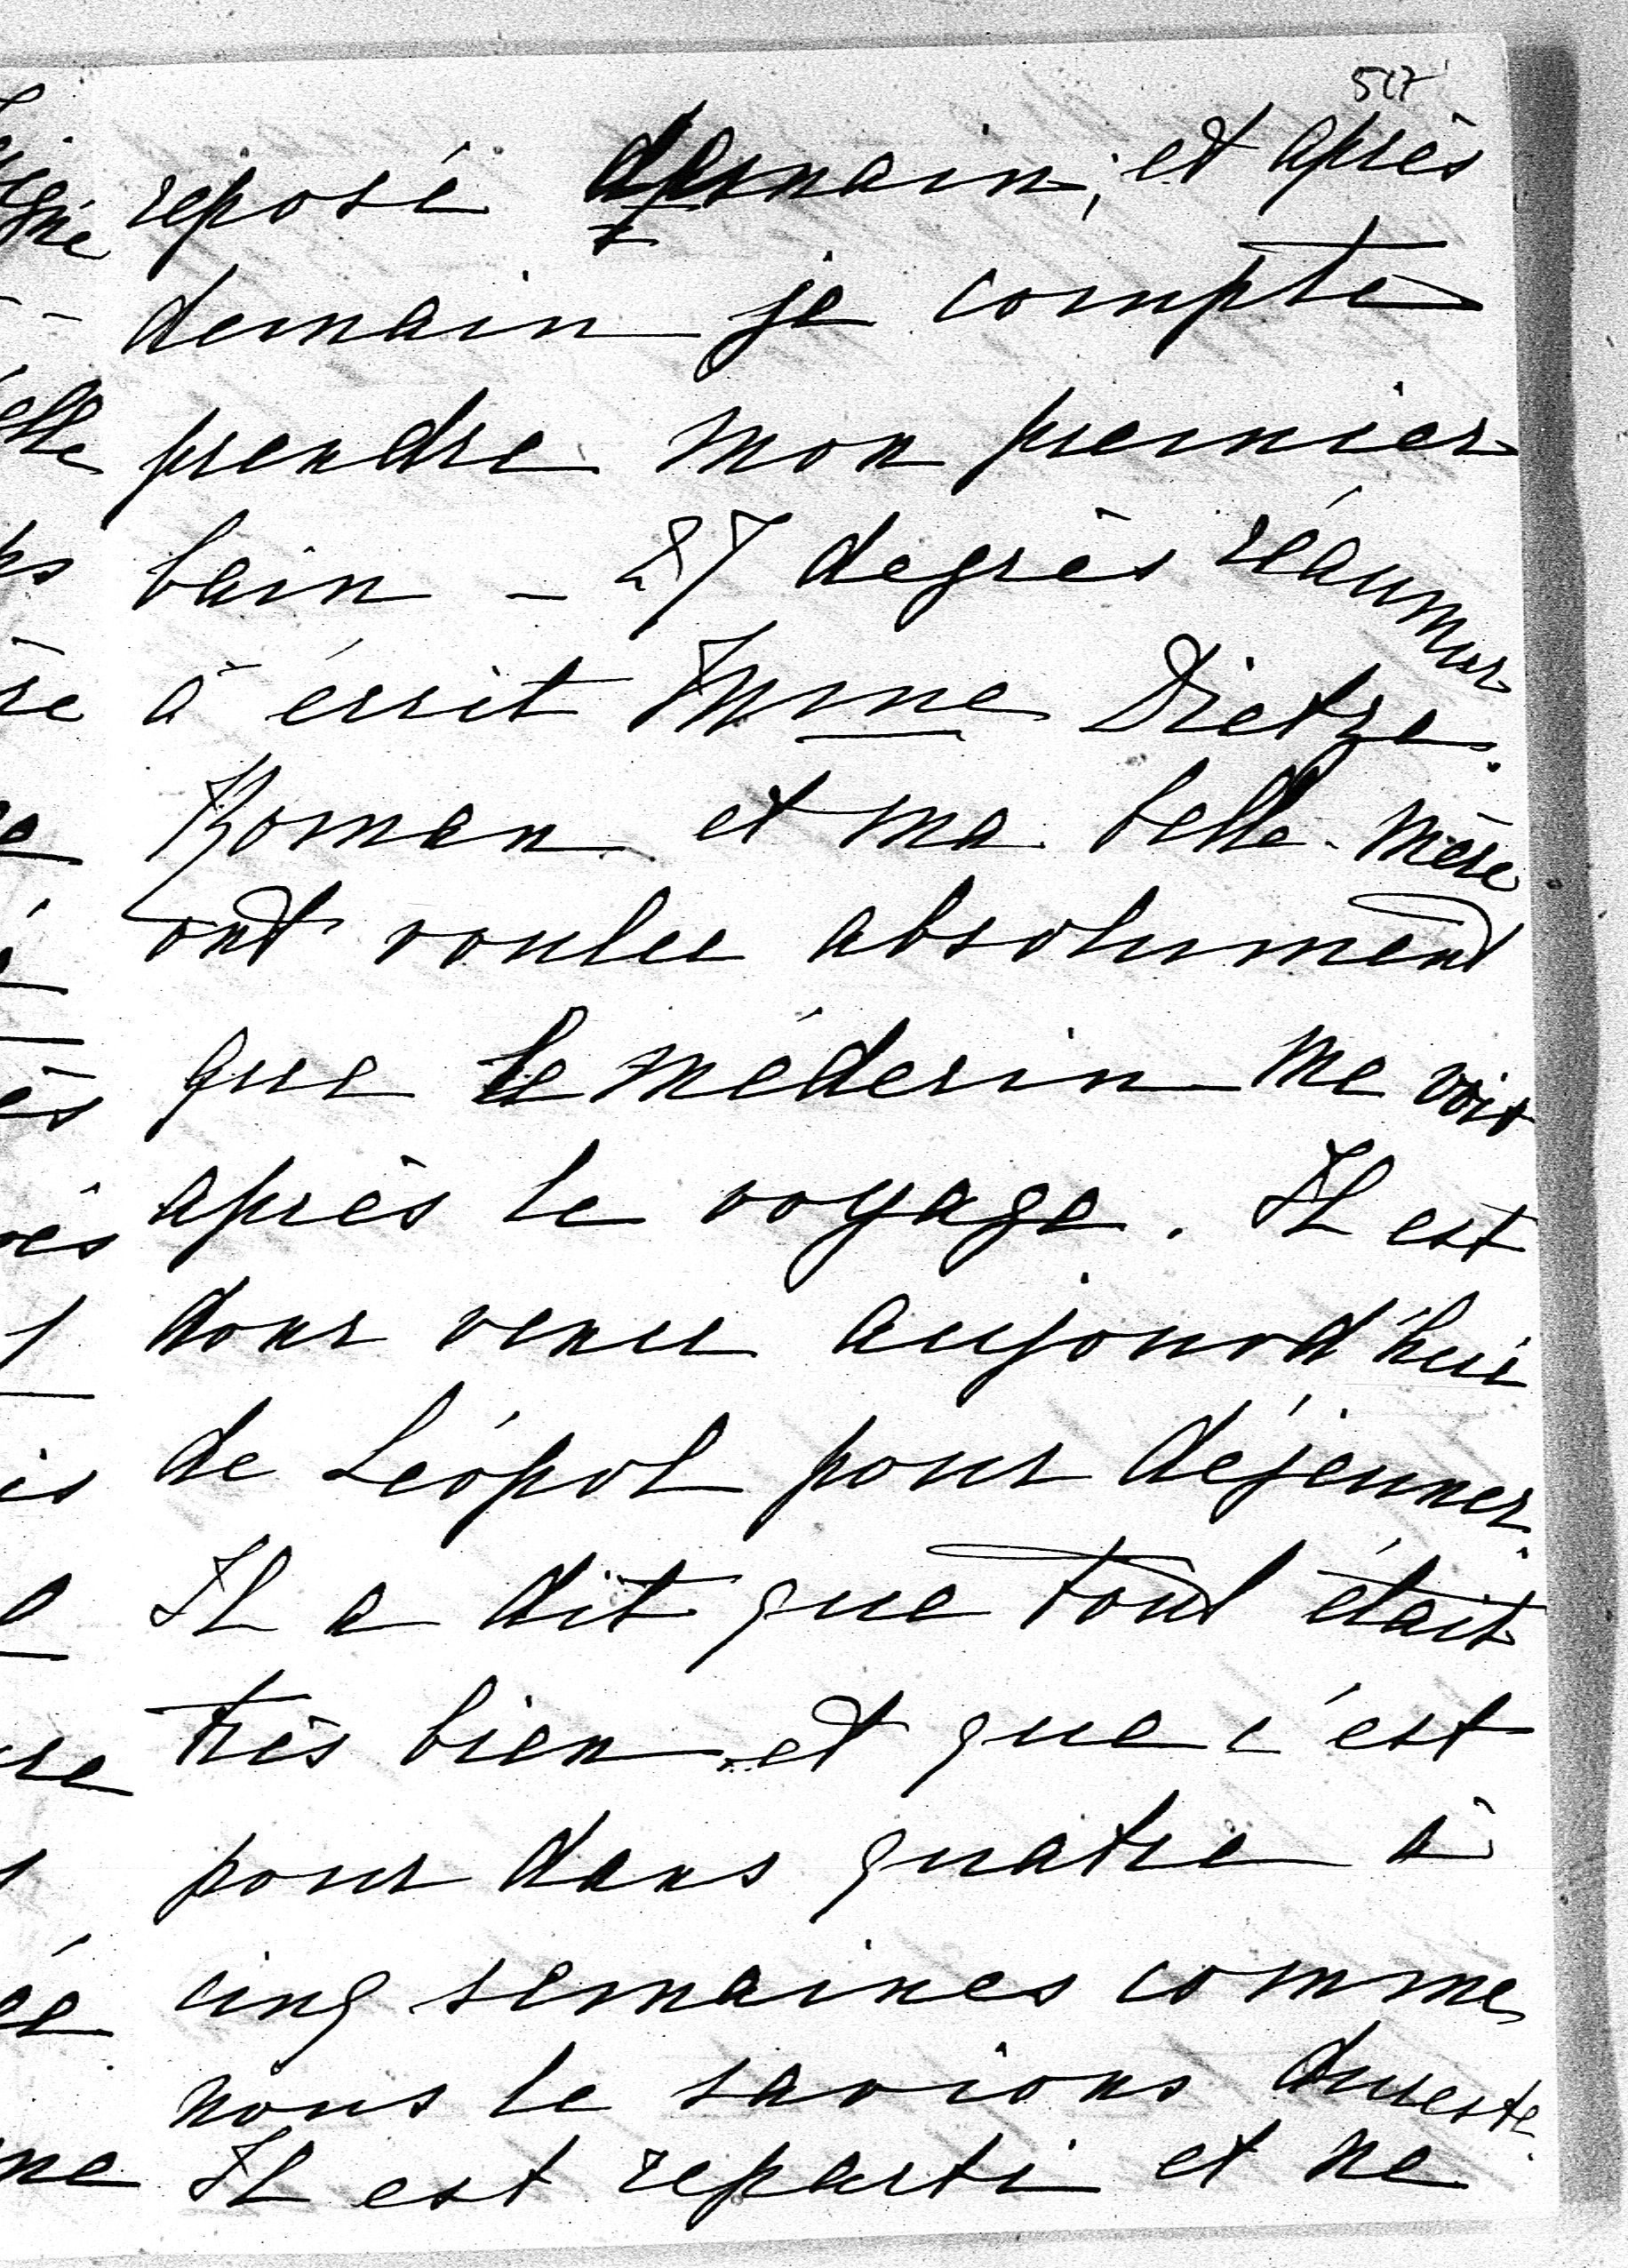 517
reposé demain, et après
demain je compte
prendre mon premier
bain – 27 degrès réaumur
à écrit Mme Dietze.
Roman et ma belle-mère
ont voulu absolument
que le médecin me voit
après le voyage. Il est
donc venu aujourd'hui
de Léopol pour déjeuner.
Il a dit que tout était
très bien et que c'est
pour dans quatre à
cinq semaines comme
nous le savions dureste.
Il est reparti et ne